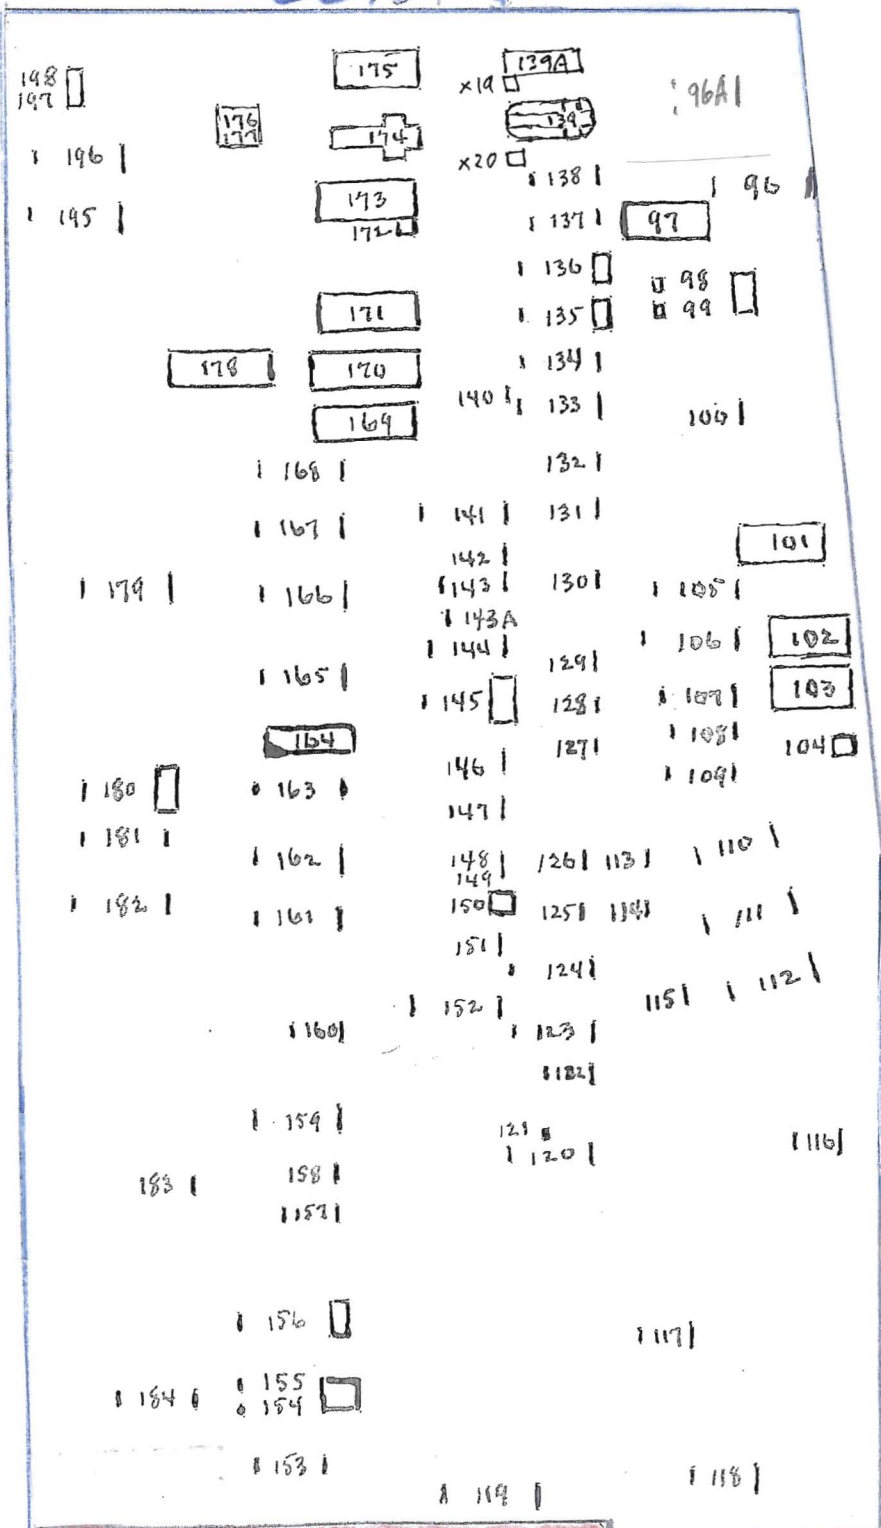 175
139A
198
197
x19
96A
176
177
174
139
196
x20
138
96
195
173
172
137
97
136
98
99
171
135
178
170
134
140
133
169
100
168
132
167
141
131
101
142
179
166
143
130
105
143A
144
106
102
165
129
145
128
107
103
164
127
108
104
146
109
180
163
147
181
110
162
148
149
126
113
182
161
150
125
114
111
151
124
152
115
112
160
123
122
159
121
120
116
183
158
157
156
117
184
155
154
153
118
119